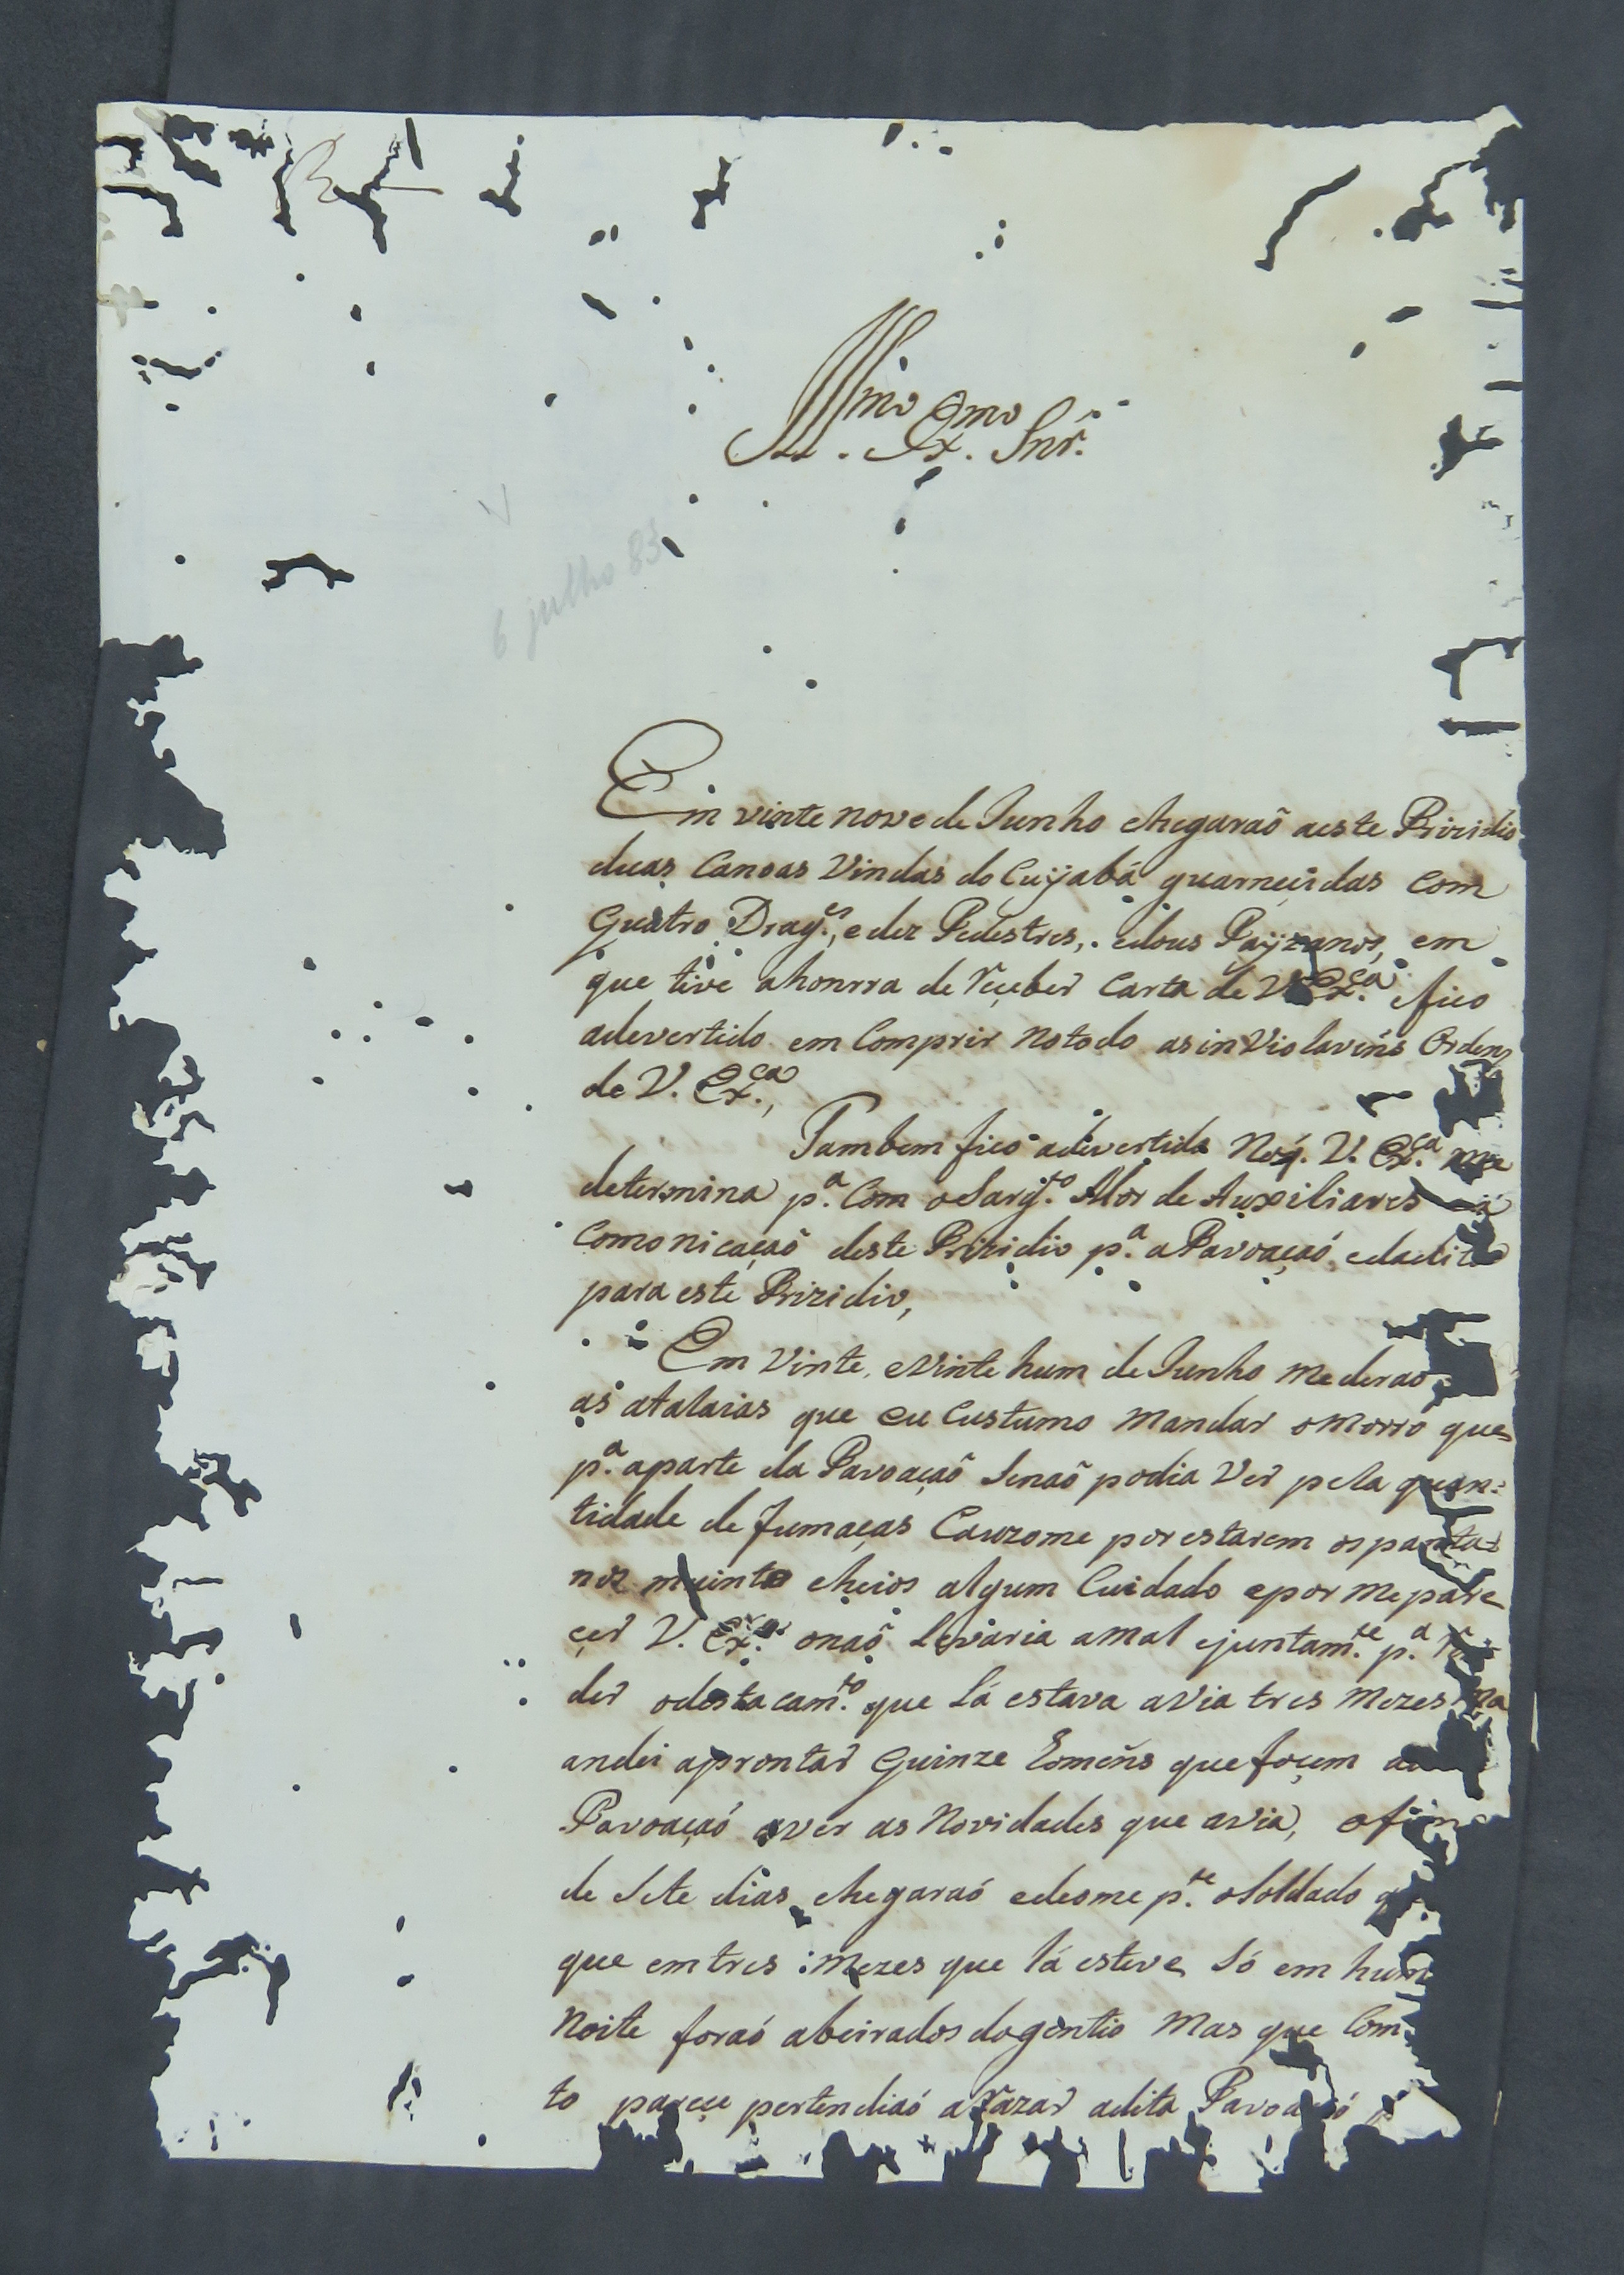 Illmo. Exmo. Snr.
6 julho 83
Em vinte nove de Junho chegaraõ aeste Prizidio
duas Canoas Vindas do Cuyabá guarneçidas Com
Quatro Drag.es, e dez Pedestres, e dous Payzanos, em
que tive ahonrra de reçeber Carta de V. Ex.ca fico
adevertido em Comprir no todo as inViolaveis Ordens
de V. Ex.ca,
Tambem fico adevertido No q. V. Ex.ca me
determina p.a Com o Sarg.to Mor de Auxiliares a
Comonicaçaõ deste Prizidio p.a a Pavoaçaó, e da dita
para este Prizidio,
Em Vinte, e Vinte hum de Junho me deraõ
as atalaias que eu Custumo Mandar o Morro que
p.a aparte da Pavoaçaõ Senaõ podia Ver pela quan:
tidade de fumaças Cauzome por estarem os panta:
nos muinto cheios algum Cuidado epor me pare
çer V. Ex.ca onaõ Levaria amal ejuntam.te p.a
der odestacam.to que Lá estava avia tres Mezes Ma
andei aprontar Quinze Eomeñs que foçem a
Pavoaçaó aver as Novidades que avia, ofim
de Sete dias chegaraó edeome p.te oSoldado
que em tres Mezes que lá esteve Só em hum
Noite foraó abeirados dogentio Mas que Com
to pareçe pertendiaó a razar adita Pavoaçaó